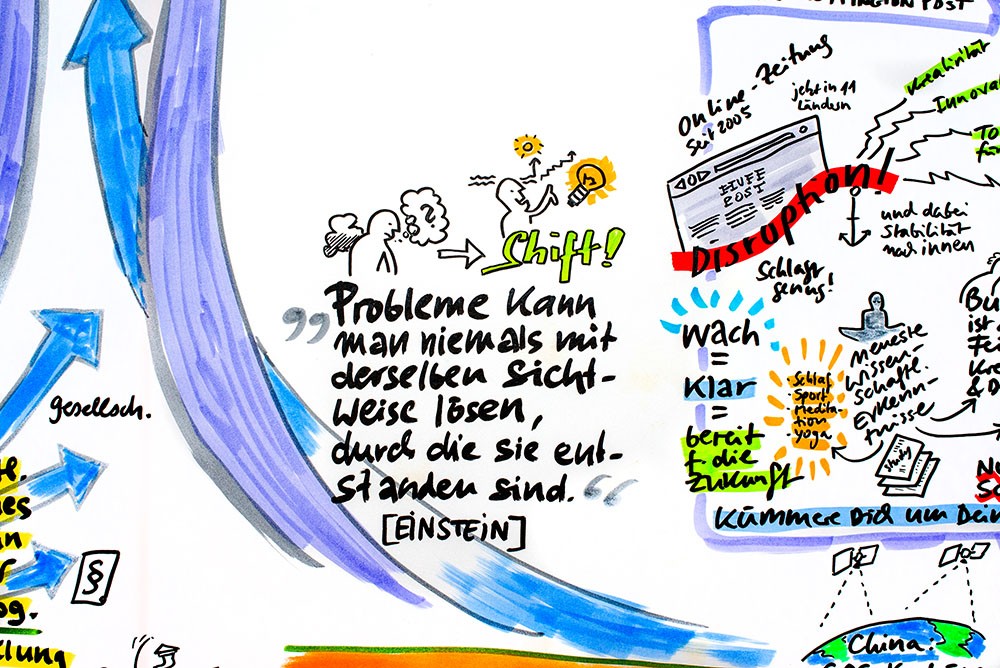 gesellsch.
§
?
Shift!
„Probleme kann
man niemals mit
derselben Sicht-
weise lösen,
durch die sie ent-
standen sind.“
[EINSTEIN]
POST
Online-Zeitung
seit 2005
jetzt in 11
Ländern
HUFF
POST
Disruption!
Kreativität
Innova
To
fü
und dabei
Stabilität
nach innen
Schlaft
genug!
wach
=
klar
=
bereit
f die
Zukunft
Schlaf
Sport
Medita-
tion
Yoga
neueste
wissen-
schaftl.
Erkennt-
nisse
Study
Bu
ist
Fei
Kre
& D
Nu
Sc
Kümmere Dich um Dein
China:
es
n
r
og.
llung